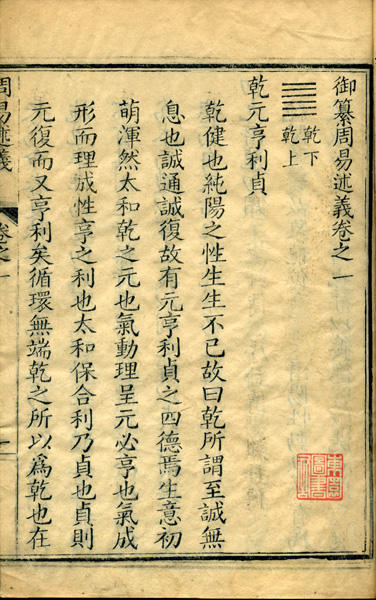 御纂周易述義卷之一
乾下
乾上
乾元亨利貞
乾健也純陽之性生生不已故曰乾所謂至誠無
息也誠通誠復故有元亨利貞之四德焉生意初
萌渾然太和乾之元也氣動理呈元必亨也氣成
形而理成性亨之利也太和保合利乃貞也貞則
元復而又亨利矣循環無端乾之所以為乾也在
周易述義
卷之一
一